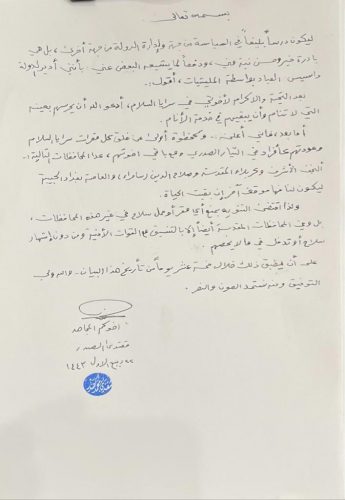 بسمه تعالى
ليكون درساً بليغاً في السياسة من جهة ولإدارة الدولة من جهة أخرى، بل هي
بادرة خير وحسن نية مني، ودفعاً لما يشيعه البعض عني: بأنني أدير الدولة
وأسيس العباد بواسطة المليشيات، أقول:
بعد التحية والإكرام لأخوتي في سرايا السلام، أدعو الله أن يحرسهم بعينه
التي لا تنام وأن يبقيهم في خدمة الأنام.
أما بعد، فإنني أعلن: وكخطوة أولى عن غلق كل مقرات سرايا السلام
وعودتهم كأفراد في التيار الصدري وفي اخوتهم، عدا المحافظات التالية:
النجف الأشرف وكربلاء المقدسة وصلاح الدين (سامراء)، والعاصمة بغداد الحبيبة
ليكون لنا فيها موقف آخر إن بقت الحياة.
ولذا اقتضى التنويه بمنع أي مقر أو حمل سلاح في غير هذه المحافظات،
بل وفي المحافظات المقدسة أيضاً إلا بالتنسيق مع القوات الأمنية ومن دون إشهار
سلاح أو تدخل في ما لا يخصهم.
على أن يطبق ذلك خلال خمسة عشر يوماً من تاريخ هذا البيان. والله ولي
التوفيق ومنه نستمد العون والنصر.
اخوكم المجاهد
مقتدى الصدر
٢٢ ربيع الاول ١٤٤٣